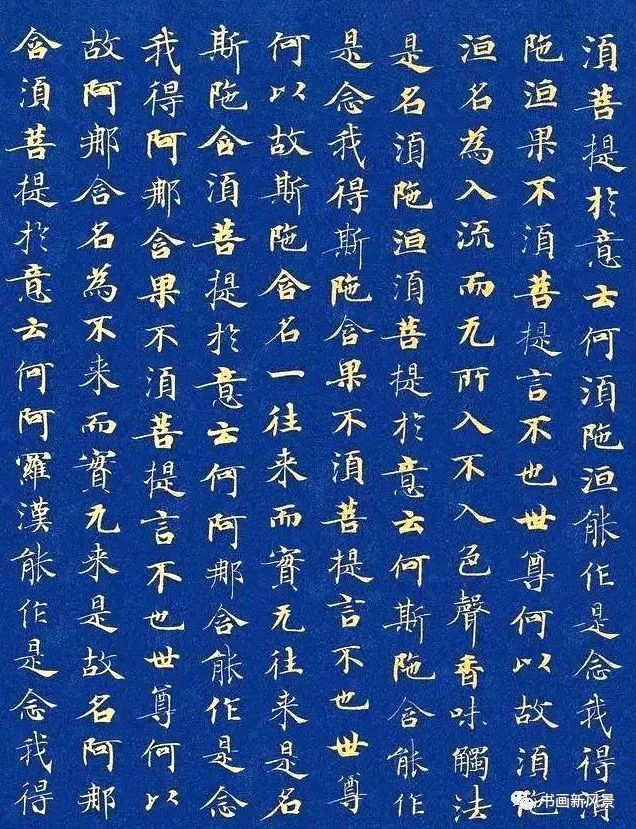 湏菩提於意云何湏陁洹能作是念我得湏
陁洹果不湏菩提言不也世尊何以故湏陁
洹名為入流而无所入不入色聲香味觸法
是名湏陁洹湏菩提於意云何斯陁含能作
是念我得斯陁含果不湏菩提言不也世尊
何以故斯陁含名一往来而實无往来是名
斯陁含湏菩提於意云何阿那含能作是念
我得阿那含果不湏菩提言不也世尊何以
故阿那含名為不来而實无来是故名阿那
含湏菩提於意云何阿羅漢能作是念我得
书画新风景